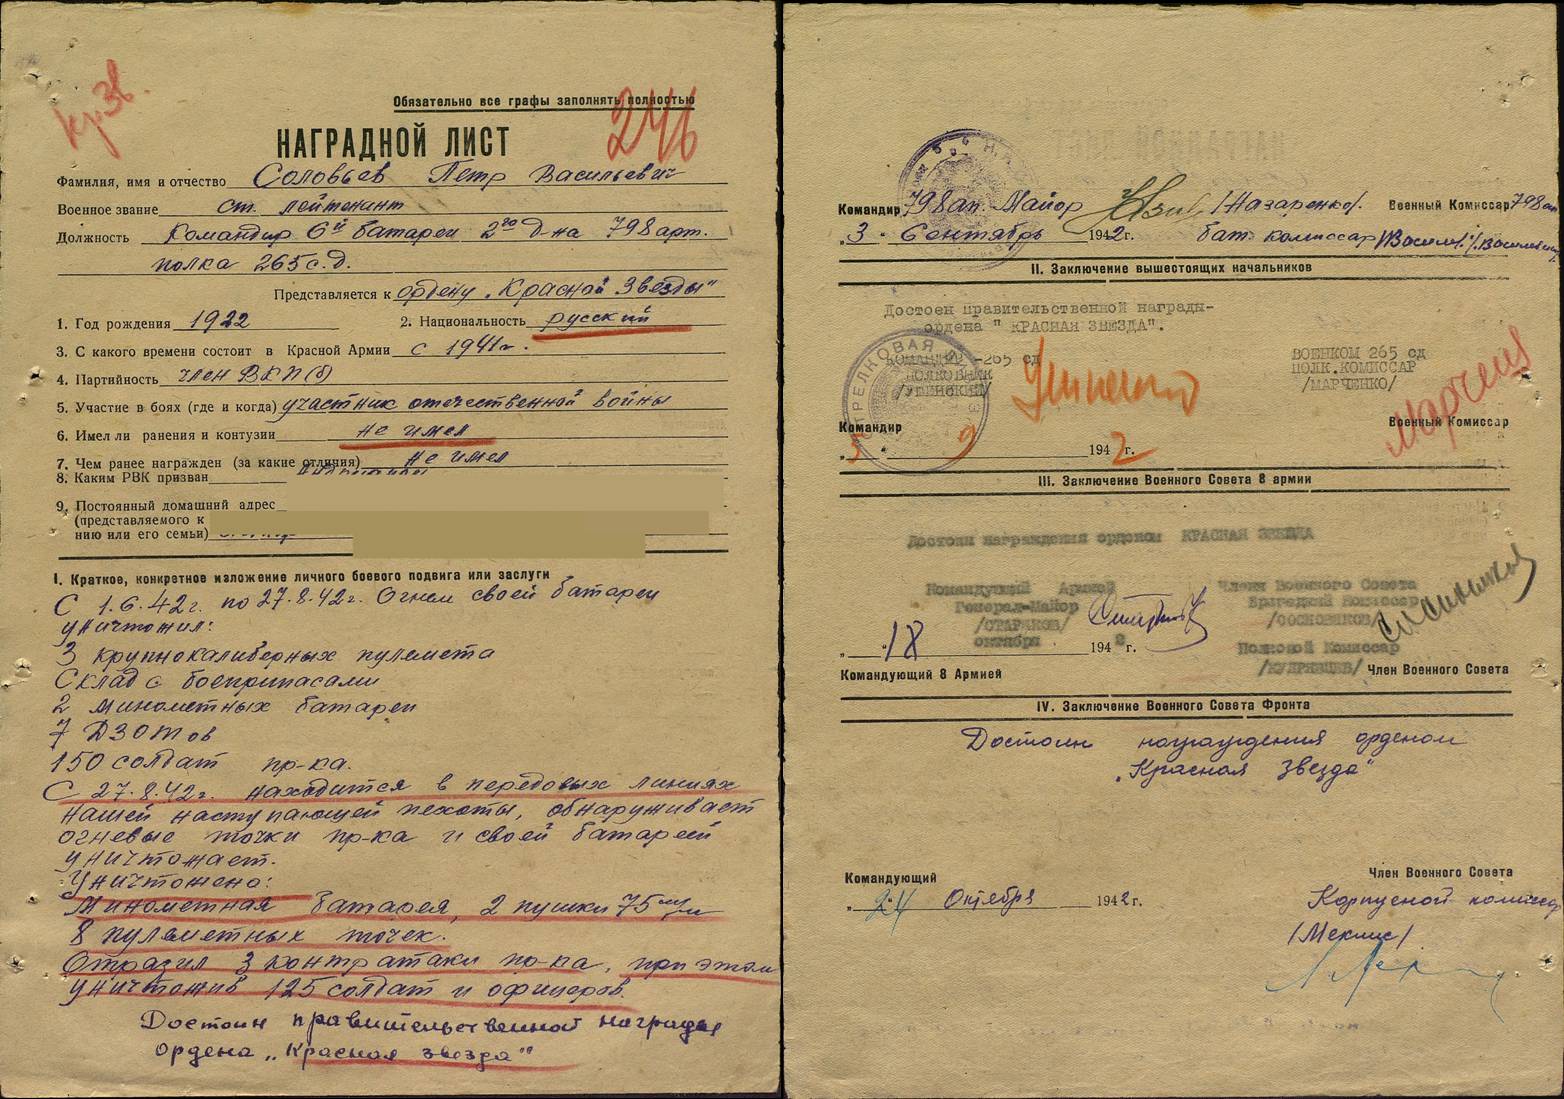 Кр. Зв.
Обязательно все графы заполнять полностью
246
НАГРАДНОЙ ЛИСТ
Фамилия, имя и отчество Соловьев Петр Васильевич
Военное звание ст. лейтенант
Должность Командир 6й батареи 2го д-на 798 арт.
полка 265 с.д.
Представляется к ордену „Красной Звезды"
1. Год рождения 1922 2. Национальность русский
3. С какого времени состоит в Красной Армии с 1941г.
4. Партийность член ВКП(б)
5. Участие в боях (где и когда) участник отечественной войны
6. Имел ли ранения и контузии не имел
7. Чем ранее награжден (за какие отличия) не имел
8. Каким РВК призван
9. Постоянный домашний адрес
(представляемого к
нию или его семьи)
I. Краткое, конкретное изложение личного боевого подвига или заслуги
С 1.6.42г. по 27.8.42г. Огнем своей батареи
уничтожил:
3 крупнокалиберных пулемета
Склад с боеприпасами
2 минометных батареи
7 ДЗОТов
150 солдат пр-ка.
С 27.8.42г. находится в передовых линиях
нашей наступающей пехоты, обнаруживает
огневые точки пр-ка и своей батареей
уничтожает.
Уничтожено:
Минометная батарея, 2 пушки 75 м/м
8 пулеметных точек.
Отразил 3 контратаки пр-ка, при этом
уничтожив 125 солдат и офицеров.
Достоин правительственной награды
ордена „Красная звезда"
Командир 798 ап. Майор /Назаренко/. Военный Комиссар 798 ап
„3" Сентябрь 1942г. бат. комиссар
II. Заключение вышестоящих начальников
Достоен правительственной награды-
ордена " КРАСНАЯ ЗВЕЗДА".
СТРЕЛКОВАЯ
КОМАНДИР -265 сд
ПОЛКОВНИК
/УШИНСКИЙ/
Ушинский
ВОЕНКОМ 265 сд
ПОЛК.КОМИССАР
/МАРЧЕНКО/
Марченко
Командир Военный Комиссар
„5" 9 1942г.
III. Заключение Военного Совета 8 армии
Достоин награждения орденом КРАСНАЯ ЗВЕЗДА
Командующий Армией
Генерал-Майор
/СТАРИКОВ/
Члени Военного Совета
Бригадний Комиссар
/СОСНОВИКОВ/
Сосновиков
„18" октября 1942г.
Полковой Комиссар
/КУДРЯВЦЕВ/
Командующий 8 Армией Член Военного Совета
IV. Заключение Военного Совета Фронта
Достоин награждения орденом
„Красная Звезда"
Командующий Член Военного Совета
„24" Октября 1942г. Корпусной комиссар
/Мехлис/